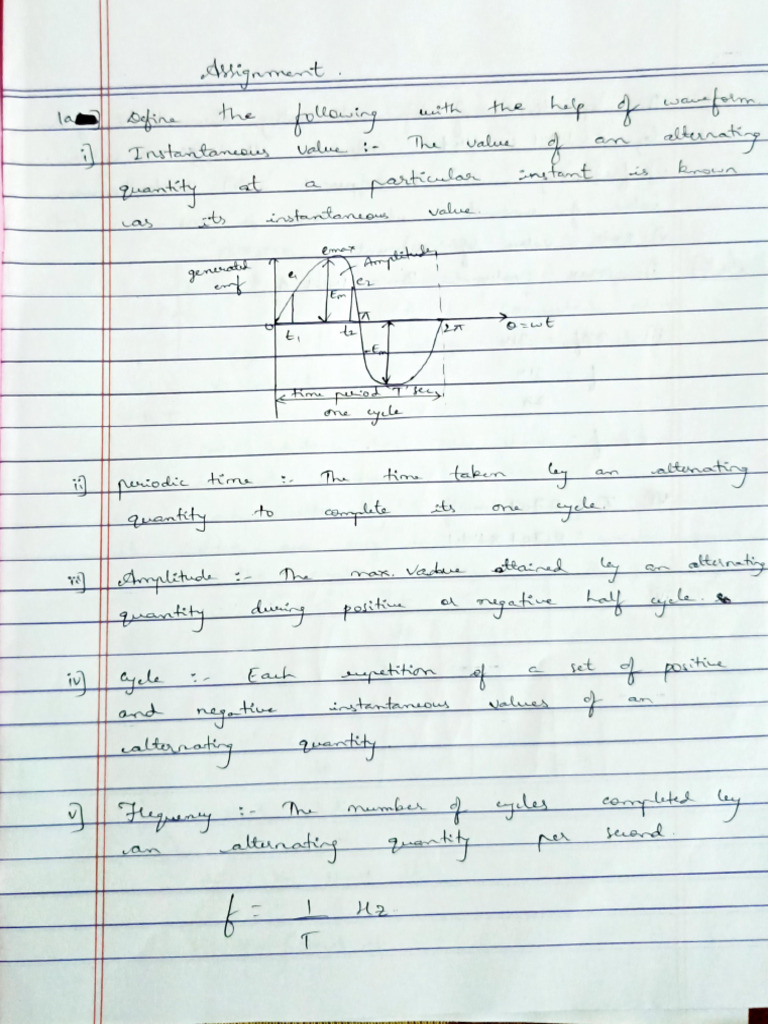 Assignment.
1a] Define the following with the help of waveform
i] Instantaneous value :- The value of an alternating
quantity at a particular instant is known
as its instantaneous value.
emax
generated emf
e1
Amplitude
Em
e2
0
t1
t2
π
2π
θ=ωt
-Em
time period 'T' sec
one cycle
ii] periodic time :- The time taken by an alternating
quantity to complete its one cycle.
iii] Amplitude :- The max. value attained by an alternating
quantity during positive or negative half cycle.
iv] cycle :- Each repetition of a set of positive
and negative instantaneous values of an
alternating quantity
v] Frequency :- The number of cycles completed by
an alternating quantity per second.
f = 1/T Hz.